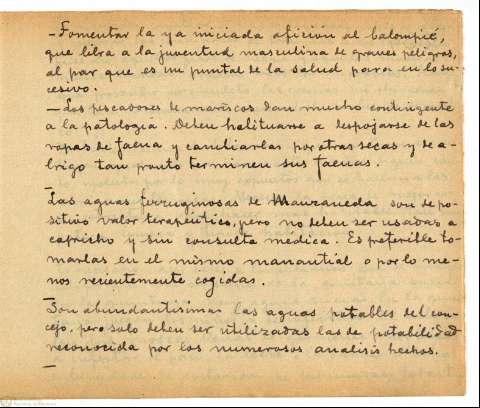 - Fomentar la ya iniciada afición al balompié,
que libra a la juventud masculina de graves peligros,
al par que es un puntal de la salud para en lo su-
cesivo.
- Los pescadores de mariscos dan mucho contingente
a la patología. Deben habituarse a despojarse de las
ropas de faena y cambiarlas por otras secas y de a-
brigo tan pronto terminen sus faenas.
-
Las aguas ferruginosas de Manzaneda son de po-
sitivo valor terapéutico, pero no deben ser usadas a
capricho y sin consulta médica. Es preferible to-
marlas en el mismo manantial o por lo me-
nos recientemente cogidas.
-
Son abundantisimas las aguas potables del con-
cejo, pero solo deben ser utilizadas las de potabilidad
reconocida por los numerosos analisis hechos.
-